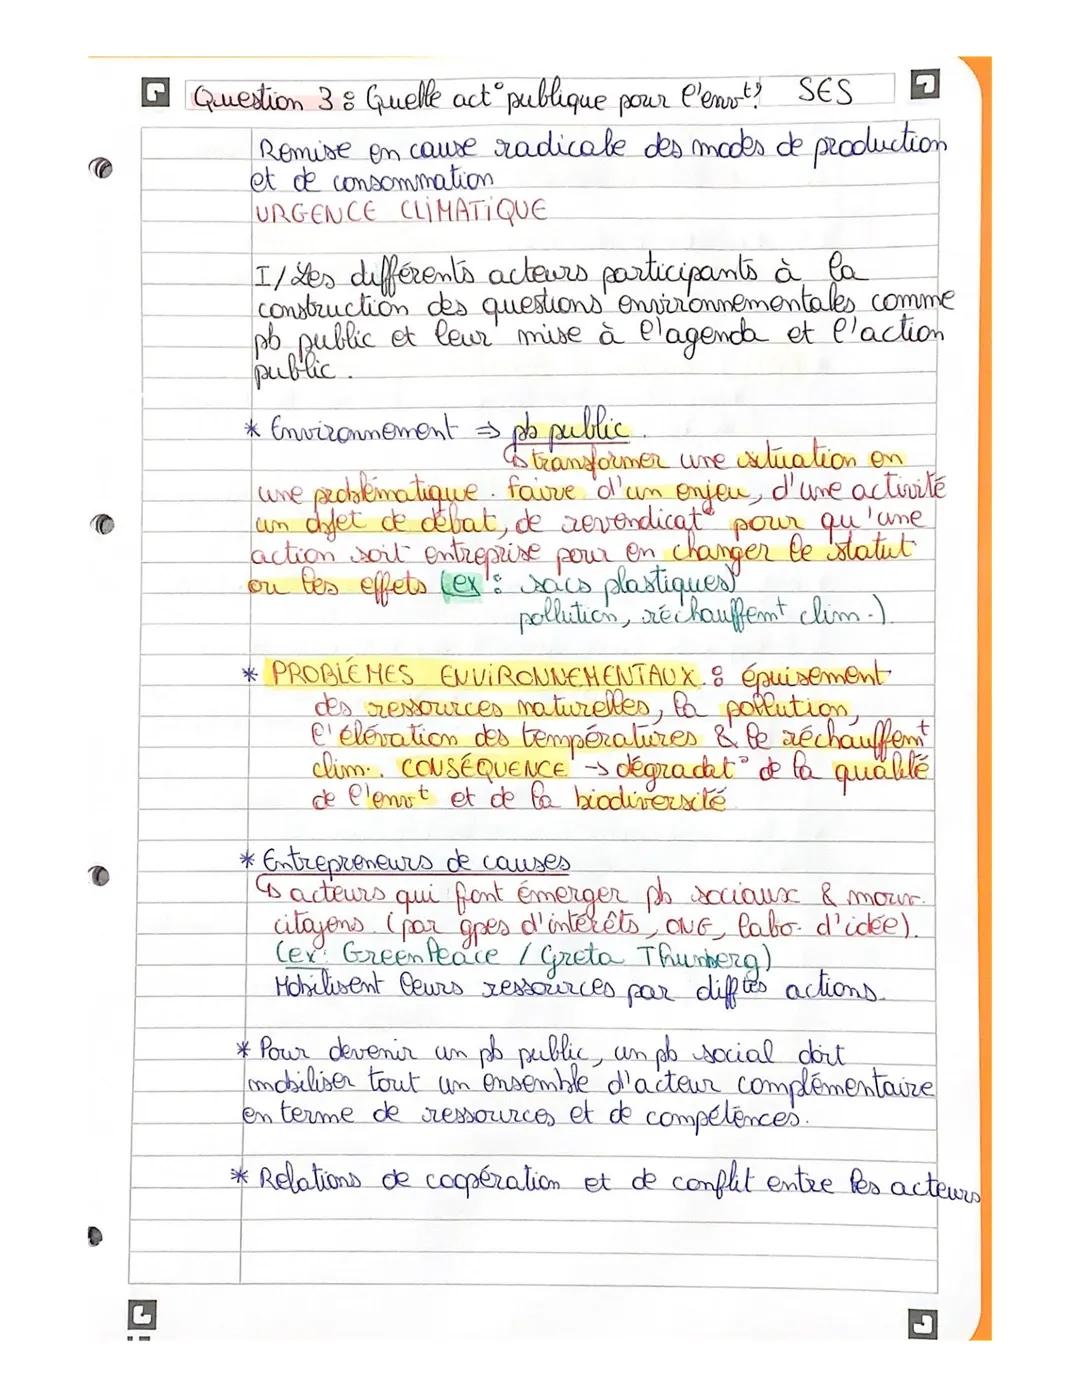 Question 3 : Quelle act° publique pour l'envt? SES
Remise en cause radicale des modes de production
et de consommation
URGENCE CLIMATIQUE
I/ Les différents acteurs participants à la
construction des questions environnementales comme
pb public et leur mise à l'agenda et l'action
public.
* Environnement ⇒ pb public.
↳ transformer une situation en
une problématique. faire d'un enjeu, d'une activité
un objet de débat, de revendicat° pour qu'une
action soit entreprise pour en changer le statut
ou les effets (ex : sacs plastiques)
pollution, réchauffemt clim.)
* PROBLÉMES ENVIRONNEMENTAUX : épuisement
des ressources naturelles, la pollution,
l'élévation des températures & le réchauffemt
clim. CONSÉQUENCE → dégradat° de la qualité
de l'envt et de la biodiversité
* Entrepreneurs de causes
↳ acteurs qui font émerger pb sociaux & mouv.
citoyens (par gpes d'intérêts, ONG, labo. d'idée).
(ex: GreenPeace / Greta Thunberg)
Mobilisent leurs ressources par difftes actions.
* Pour devenir un pb public, un pb social doit
mobiliser tout un ensemble d'acteur complémentaire
en terme de ressources et de compétences.
* Relations de coopération et de conflit entre les acteurs